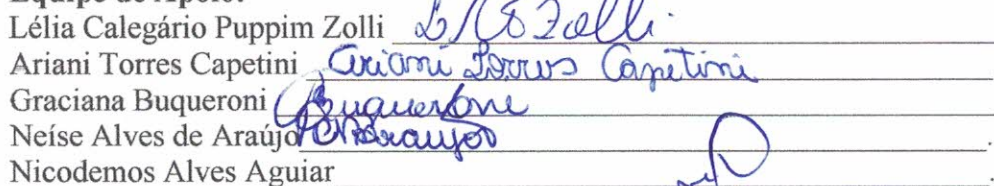 Equipe de Apoio:
Lélia Calegário Puppim Zolli Zolli
Ariani Torres Capetini Ariani Torres Capetini
Graciana Buqueroni Buqueroni
Neíse Alves de Araújo NAraujo
Nicodemos Alves Aguiar